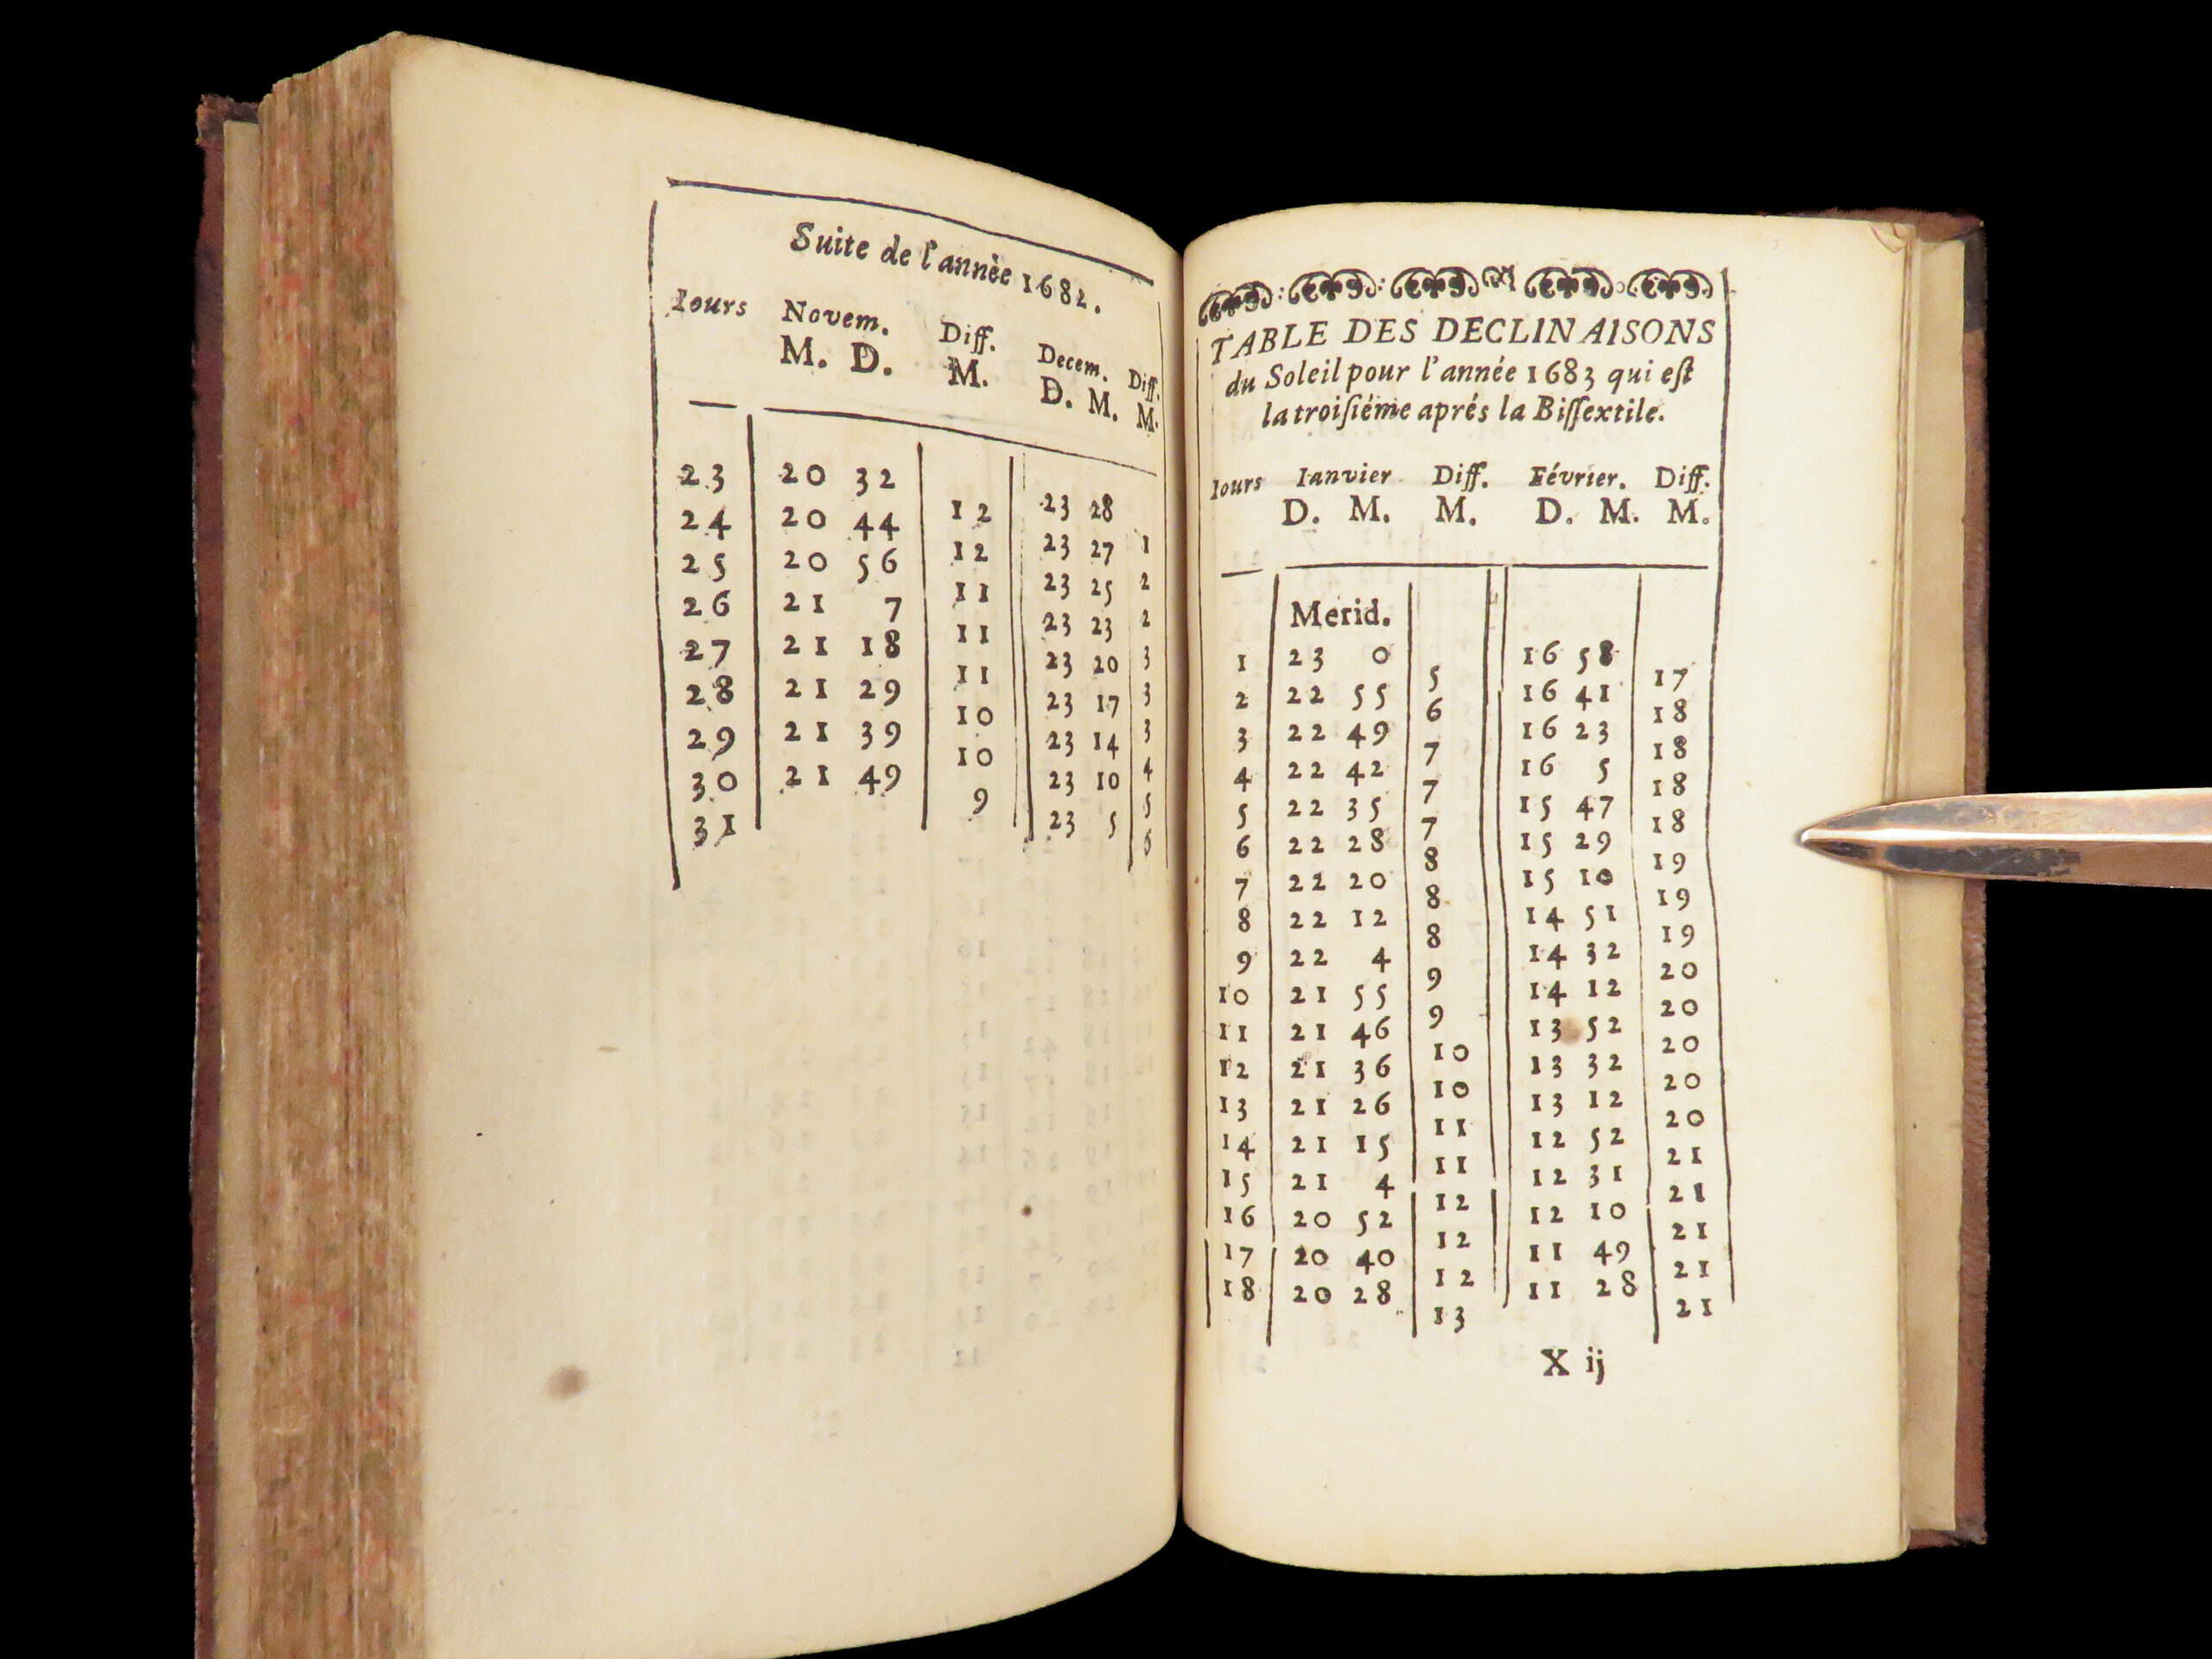 Suite de l'année 1682.
Iours Novem. Diff. Decem. Diff.
M. D. M. D. M. M.
23 20 32 23 28
12 1
24 20 44 23 27
12 2
25 20 56 23 25
11 2
26 21 7 23 23
11 3
27 21 18 23 20
11 3
28 21 29 23 17
10 3
29 21 39 23 14
10 4
30 21 49 23 10
9 5
31 23 5
6
TABLE DES DECLINAISONS
du Soleil pour l'année 1683 qui eſt
la troiſiéme aprés la Biſſextile.
Iours Ianvier Diff. Février. Diff.
D. M. M. D. M. M.
Merid.
1 23 0 16 58
5 17
2 22 55 16 41
6 18
3 22 49 16 23
7 18
4 22 42 16 5
7 18
5 22 35 15 47
7 18
6 22 28 15 29
8 19
7 22 20 15 10
8 19
8 22 12 14 51
8 19
9 22 4 14 32
9 20
10 21 55 14 12
9 20
11 21 46 13 52
10 20
12 21 36 13 32
10 20
13 21 26 13 12
11 20
14 21 15 12 52
11 21
15 21 4 12 31
12 21
16 20 52 12 10
12 21
17 20 40 11 49
12 21
18 20 28 11 28
13 21
X ij